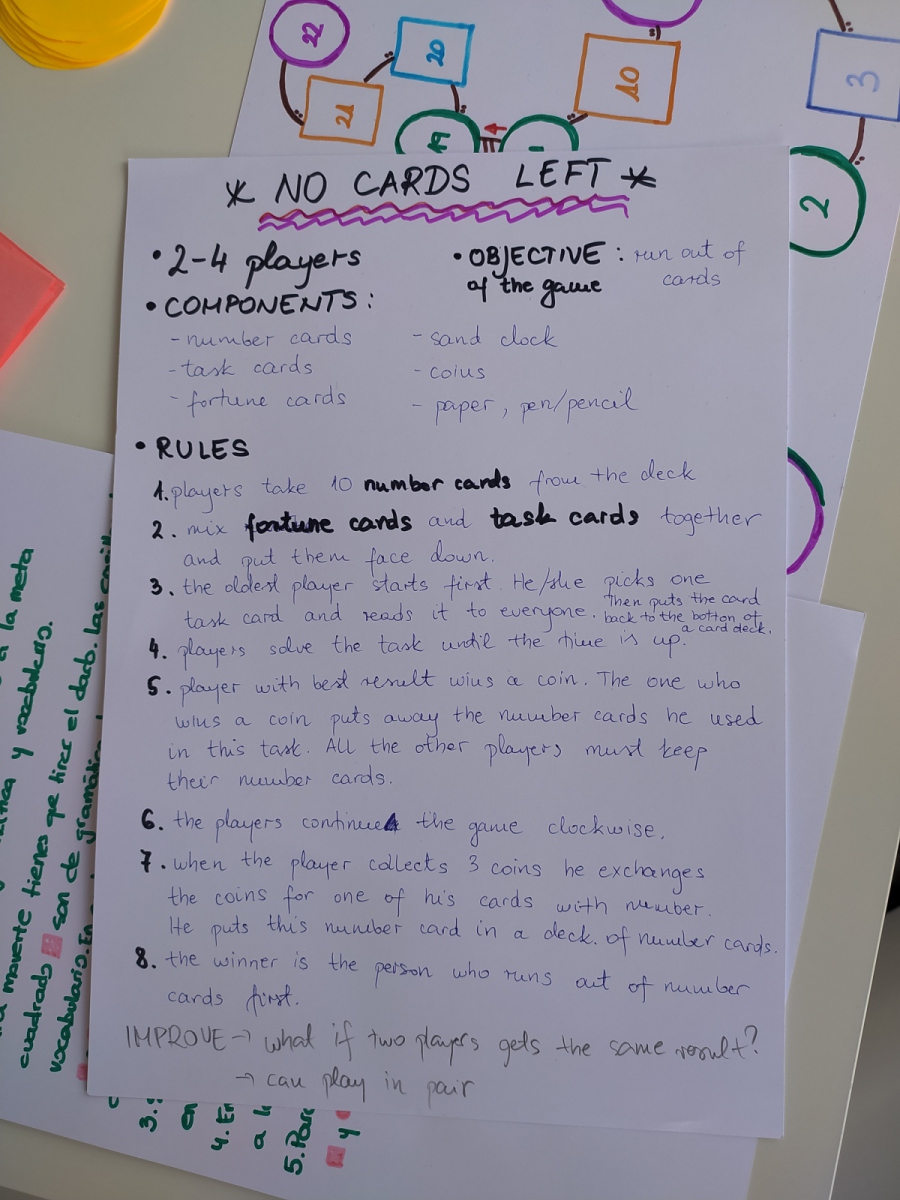 22
20
21
10
3
2
* NO CARDS LEFT *
• 2-4 players
• COMPONENTS:
- number cards
- task cards
- fortune cards
• OBJECTIVE : run out of
of the game cards
- sand clock
- coins
- paper, pen/pencil
• RULES
1. players take 10 number cards from the deck
2. mix fortune cards and task cards together
and put them face down.
3. the oldest player starts first. He/she picks one
task card and reads it to everyone. Then puts the card
back to the bottom of
a card deck.
4. players solve the task until the time is up.
5. player with best result wins a coin. The one who
wins a coin puts away the number cards he used
in this task. All the other players must keep
their number cards.
6. the players continue the game clockwise.
7. when the player collects 3 coins he exchanges
the coins for one of his cards with number.
He puts this number card in a deck. of number cards.
8. the winner is the person who runs out of number
cards first.
IMPROVE → what if two players gets the same result?
→ can play in pair
a la meta
y vocabulario.
tienes que tirar el dado. Las
cuadrado son de
vocabulario. En
3.
4. En
a
5.
y